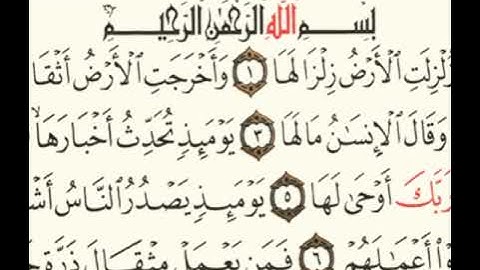 بِسْمِ ٱللَّهِ ٱلرَّحْمَٰنِ ٱلرَّحِيمِ
زُلْزِلَتِ ٱلْأَرْضُ زِلْزَالَهَا ١ وَأَخْرَجَتِ ٱلْأَرْضُ أَثْقَا
وَقَالَ ٱلْإِنسَٰنُ مَا لَهَا ٣ يَوْمَئِذٍ تُحَدِّثُ أَخْبَارَهَا
رَبَّكَ أَوْحَىٰ لَهَا ٥ يَوْمَئِذٍ يَصْدُرُ ٱلنَّاسُ أَشْ
وْا۟ أَعْمَٰلَهُمْ ٦ فَمَن يَعْمَلْ مِثْقَالَ ذَرَّةٍ خَ